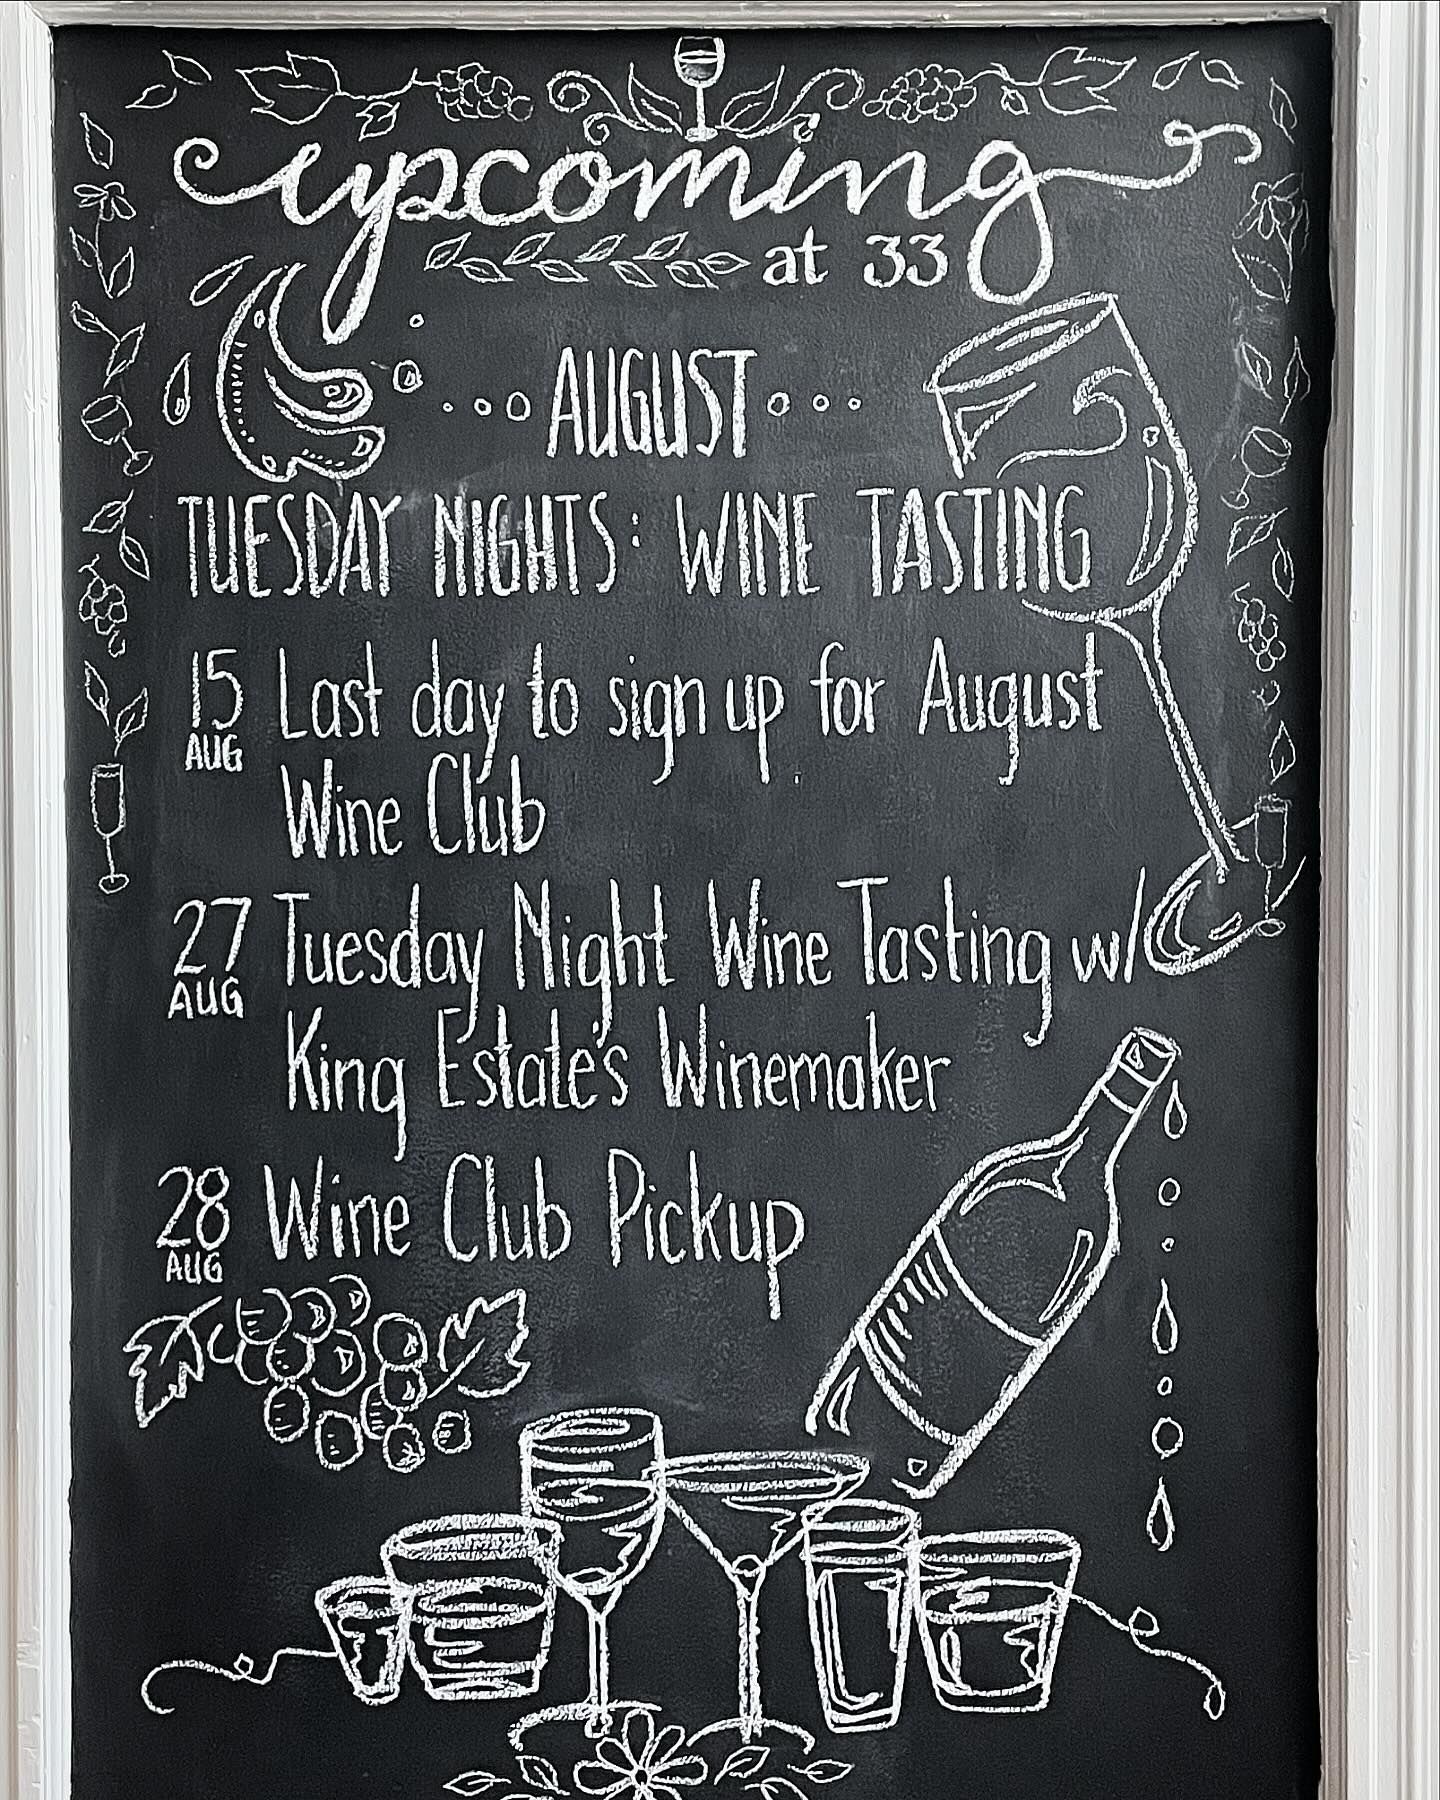 upcoming
at 33
AUGUST
TUESDAY NIGHTS: WINE TASTING
15 AUG Last day to sign up for August
Wine Club
27 AUG Tuesday Night Wine Tasting w/
King Estate's Winemaker
28 AUG Wine Club Pickup